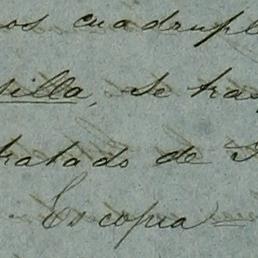 os cuadrupl
silla, se tras
tratado de
Es copia